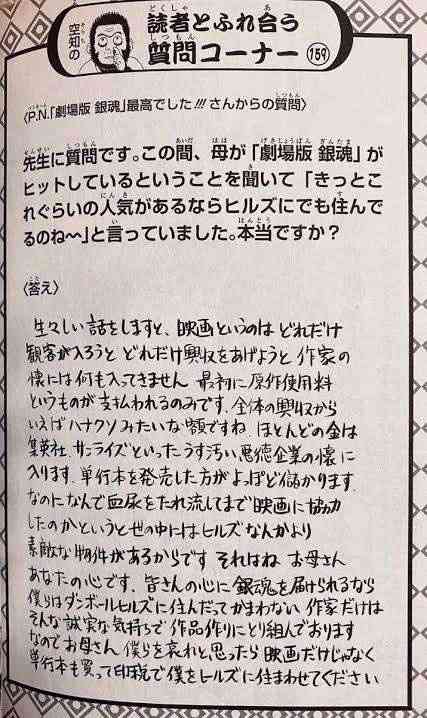 空知の
読者とふれ合う
質問コーナー 159
〈P.N.「劇場版 銀魂」最高でした!!! さんからの質問〉
先生に質問です。この間、母が「劇場版 銀魂」が
ヒットしているということを聞いて「きっとこ
れぐらいの人気があるならヒルズにでも住んで
るのね〜」と言っていました。本当ですか？
〈答え〉
生々しい話をしますと、映画というのは どれだけ
観客が入ろうと どれだけ興収をあげようと 作家の
懐には何も入ってきません 最初に原作使用料
というものが支払われるのみです。全体の興収から
いえばハナクソみたいな額ですね ほとんどの金は
集英社、サンライズといったうす汚い悪徳企業の懐に
入ります。単行本を発売した方がよっぽど儲かります。
なのになんで血尿をたれ流してまで映画に協力
したのかというと世の中にはヒルズなんかより
素敵な物件があるからです それはね お母さん
あなたの心です。皆さんの心に 銀魂を届けられるなら
僕らはダンボールヒルズに住んだってかまわない 作家だけは
そんな誠実な気持ちで 作品作りにとり組んでおります
なのでお母さん 僕らを哀れと思ったら 映画だけじゃなく
単行本も買って印税で僕をヒルズに住まわせてください